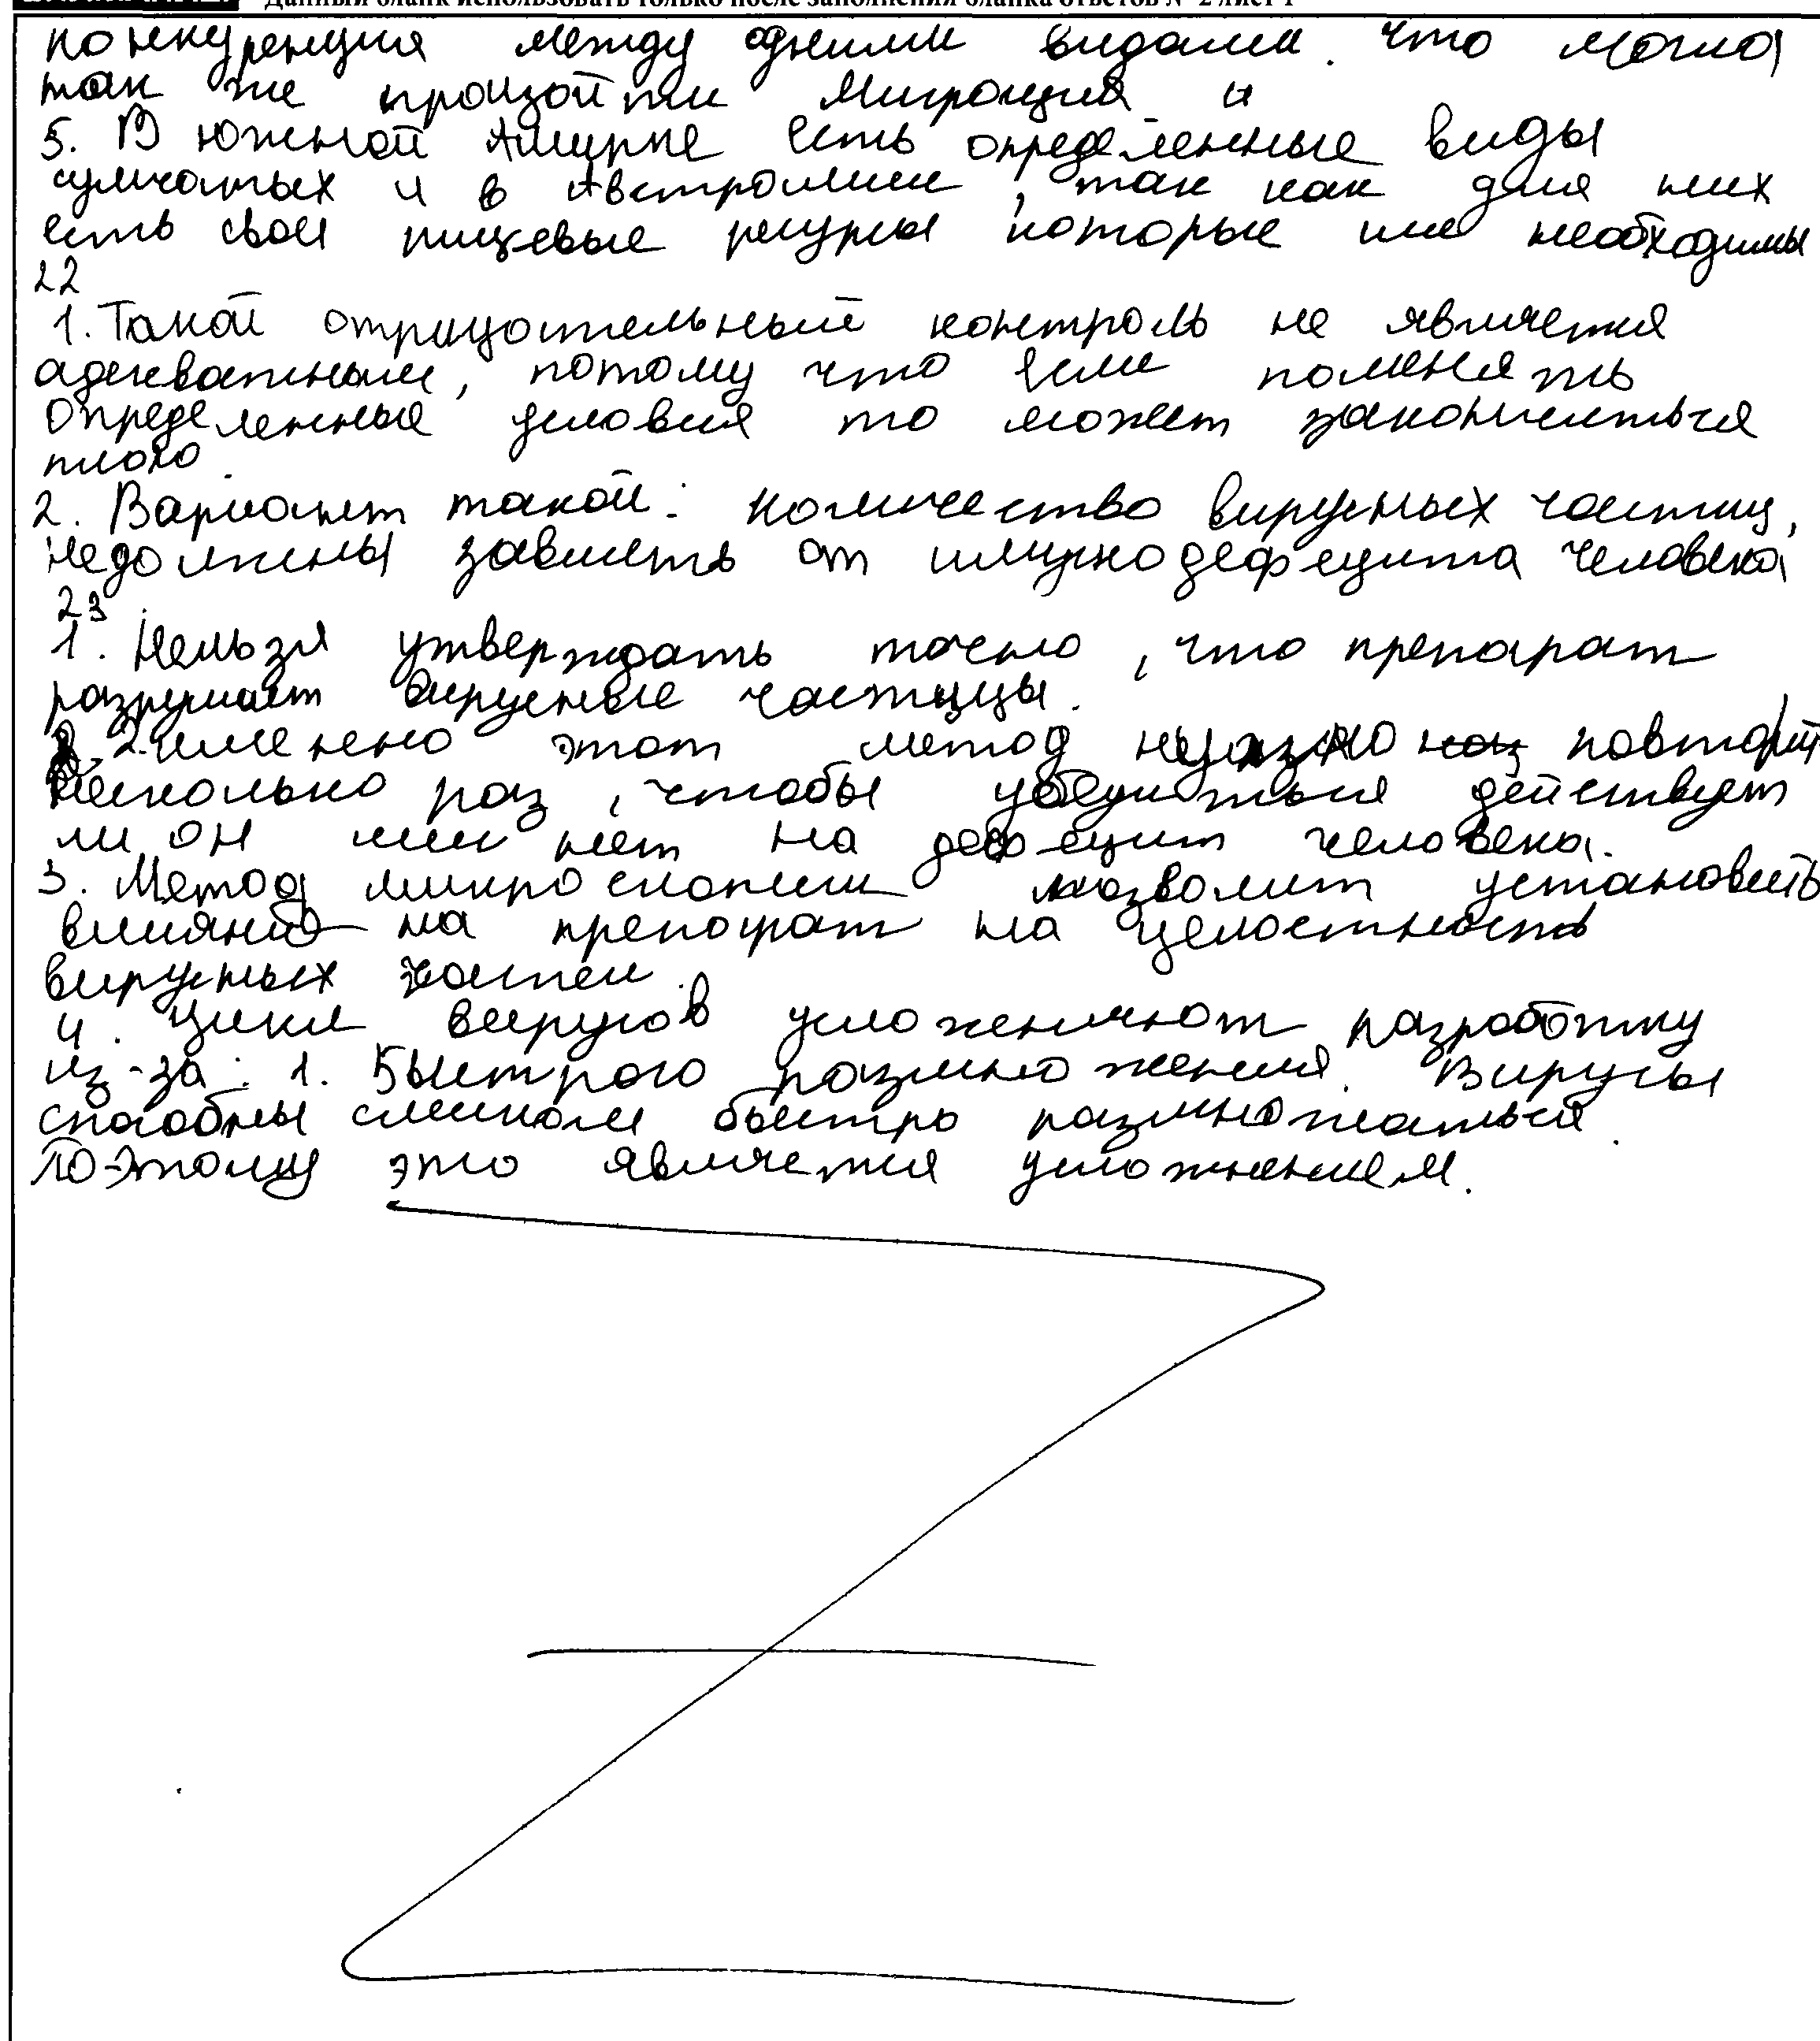 Данный бланк использовать только после заполнения бланка ответов № 2 лист 1
конкуренция между одними видами. что могла
так же произойти миграция и
5. В южной Амурке есть определенные виды
сумчатых и в Австралии, так как для них
есть свои пищевые ресурсы которые им необходимы
22
1. Такой отрицательный контроль не является
адекватным, потому что если поменять
определенные условия то может закончиться
плохо.
2. Вариант такой: количество вирусных частиц,
недолжены зависить от иммунодефецита человека
23
1. Нельзя утверждать точно, что препарат
разрушает вирусные частицы.
2. именено этот метод нужно повторит
несколько раз, чтобы убедиться действует
ли он или нет на дефецит человека.
3. Метод микроскопии позволит установить
влияние на препарат на целостность
вирусных частей.
4. Цикл вирусов усложеничают разработку
из-за: 1. Быстрого размножения. Вирусы
способны слишком быстро размножаться.
По-этому это является усложнением.